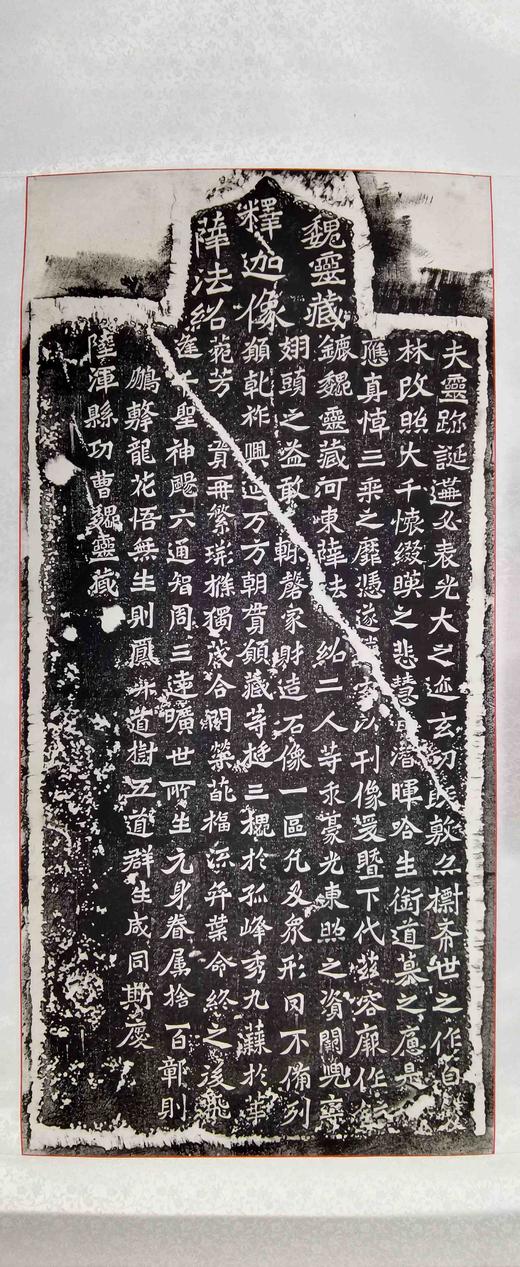 魏靈藏
釋迦像
薛法紹
夫靈跡誕遘必表光大之迹玄功既敷亦標希世之作自
林改照大千懷綴暎之悲慧日潛暉哈生銜道慕之痛是
應真悼三乘之靡憑遂空以刊像爰暨下代茲容廓作
鏕魏靈藏河東薛法紹二人等求豪光東照之資闕兜率
翅頭之益敢輒磬家財造石像一區凡及眾形罔不備列
願乾祚興延万方朝貫願藏等挺三槐於孤峰秀九蕀於華
苑芳實再繁荊條獨茂合門榮葩福流弈葉命終之後飛
逢千聖神颺六通智周三達曠世所生元身眷屬捨百鄣則
鵬擊龍花悟無生則鳳昇道樹五道群生咸同斯慶
陸渾縣功曹魏靈藏